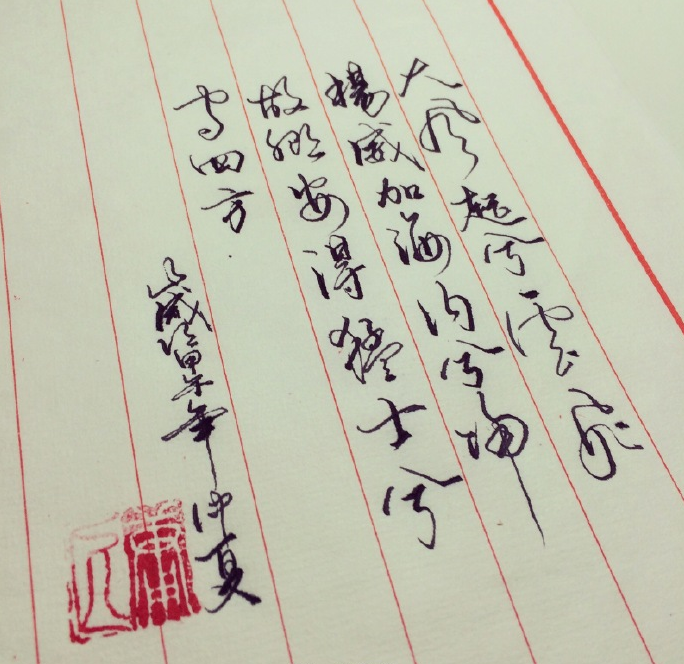 大風起兮雲飛
揚威加海內兮歸
故鄉安得猛士兮
守四方
歲次甲午年仲夏